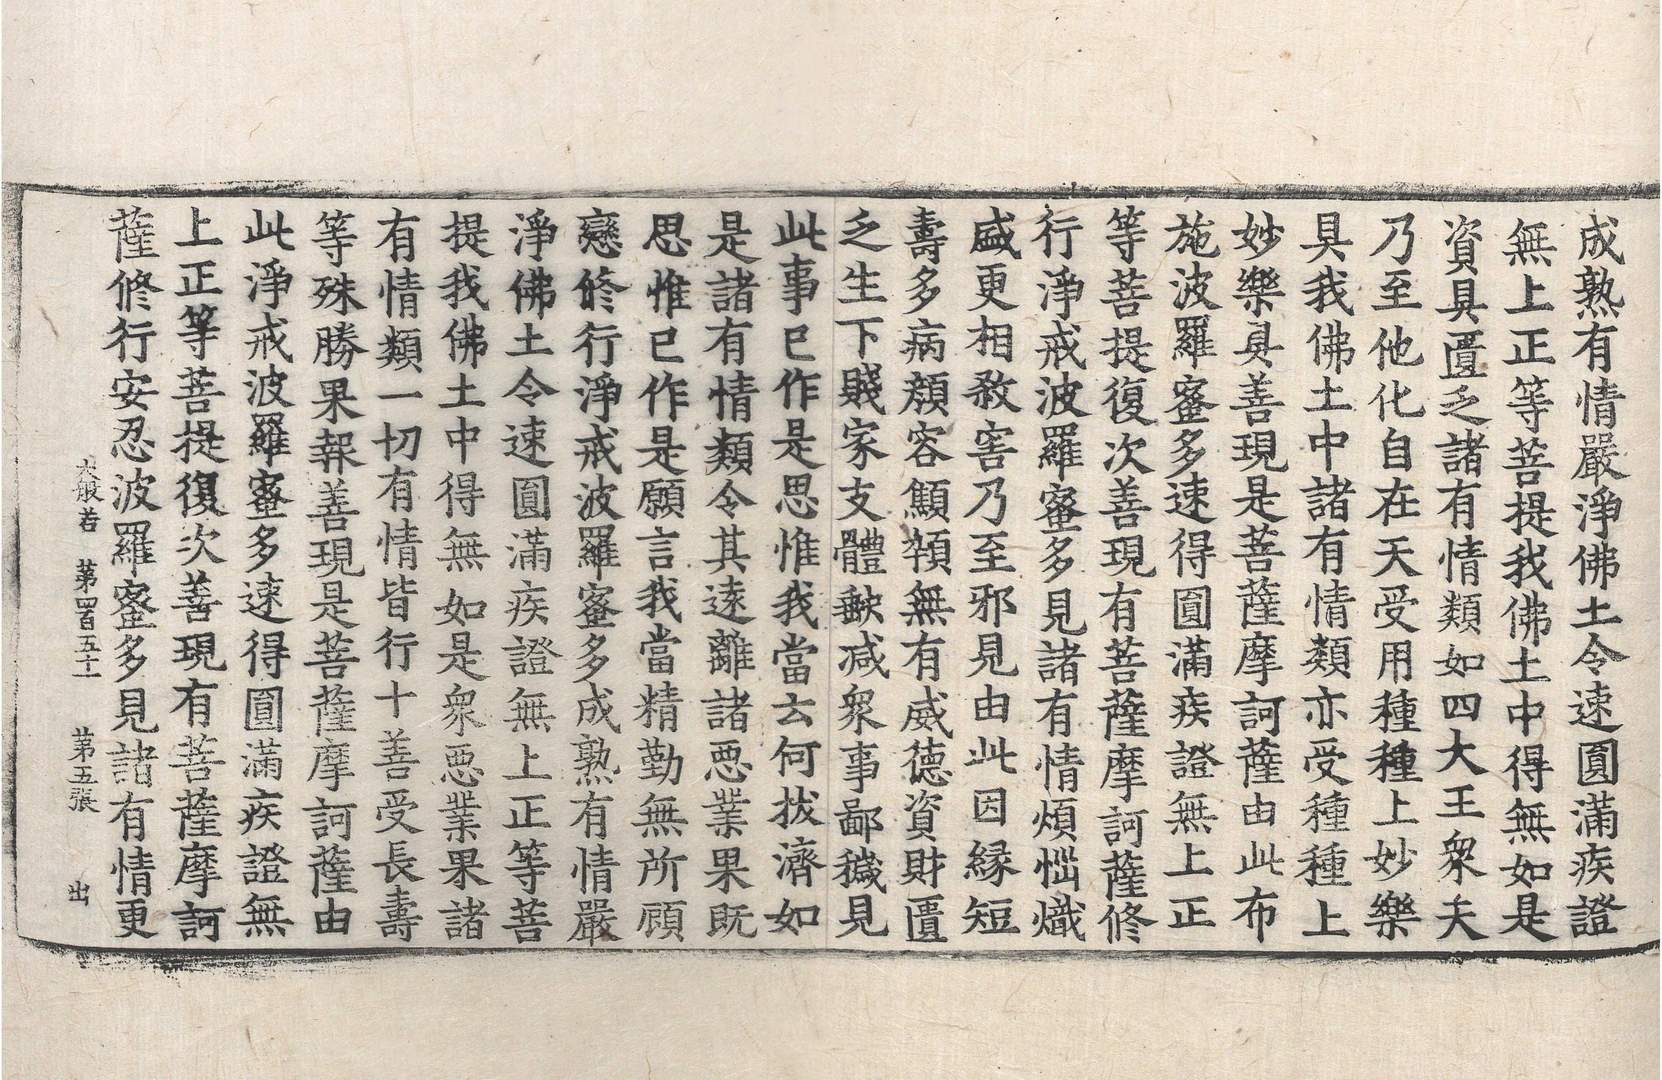 成熟有情嚴淨佛土令速圓滿疾證
無上正等菩提我佛土中得無如是
資具匱乏諸有情類如四大王衆天
乃至他化自在天受用種種上妙樂
具我佛土中諸有情類亦受種種上
妙樂具善現是菩薩摩訶薩由此布
施波羅蜜多速得圓滿疾證無上正
等菩提復次善現有菩薩摩訶薩修
行淨戒波羅蜜多見諸有情煩惱熾
盛更相殺害乃至邪見由此因緣短
壽多病顏容顦顇無有威德資財匱
乏生下賤家支體缺減衆事鄙穢見
此事已作是思惟我當云何拔濟如
是諸有情類令其遠離諸惡業果既
思惟已作是願言我當精勤無所顧
戀修行淨戒波羅蜜多成熟有情嚴
淨佛土令速圓滿疾證無上正等菩
提我佛土中得無如是衆惡業果諸
有情類一切有情皆行十善受長壽
等殊勝果報善現是菩薩摩訶薩由
此淨戒波羅蜜多速得圓滿疾證無
上正等菩提復次善現有菩薩摩訶
薩修行安忍波羅蜜多見諸有情更
大般若 第四百五十一 第五張 出